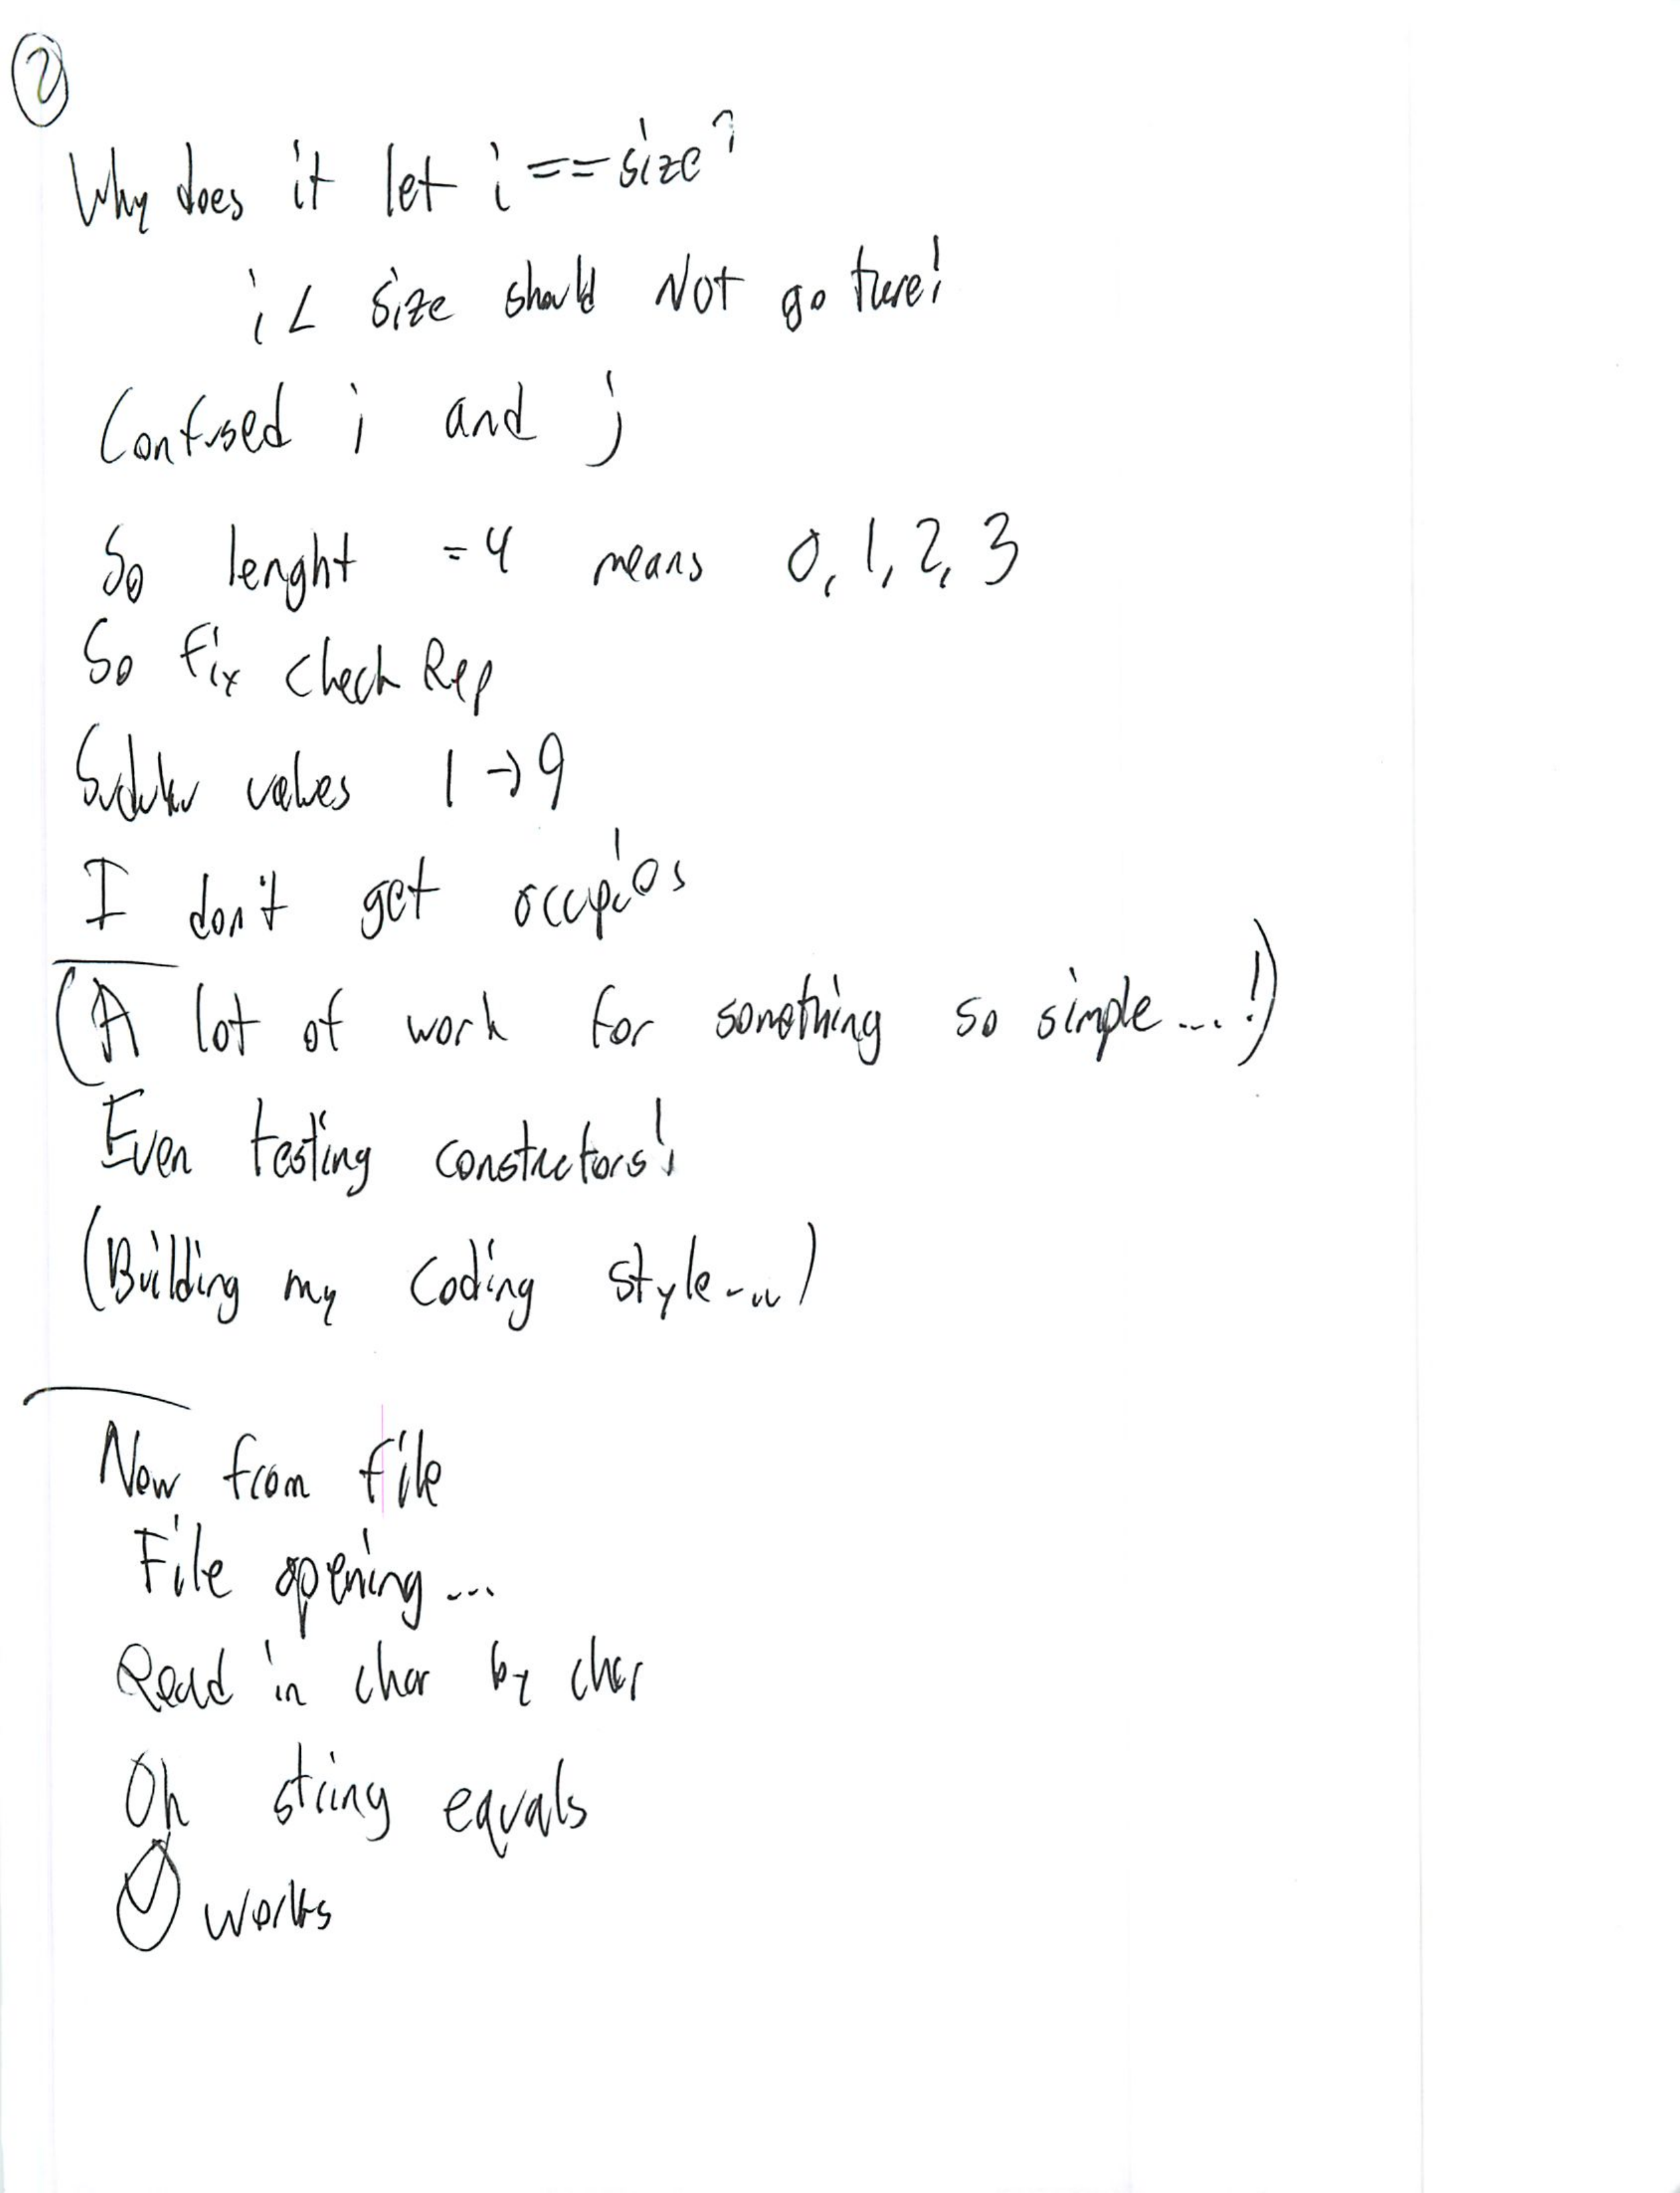 2
Why does it let i == size?
i < size should NOT go there!
Confused i and j
So lenght = 4 means 0, 1, 2, 3
So fix check Rep
Suduku values 1 → 9
I don't get occupies
(A lot of work for something so simple...!)
Even testing constructors!
(Building my coding style...)
Now from file
File opening...
Read in char by char
Oh string equals
✓ works